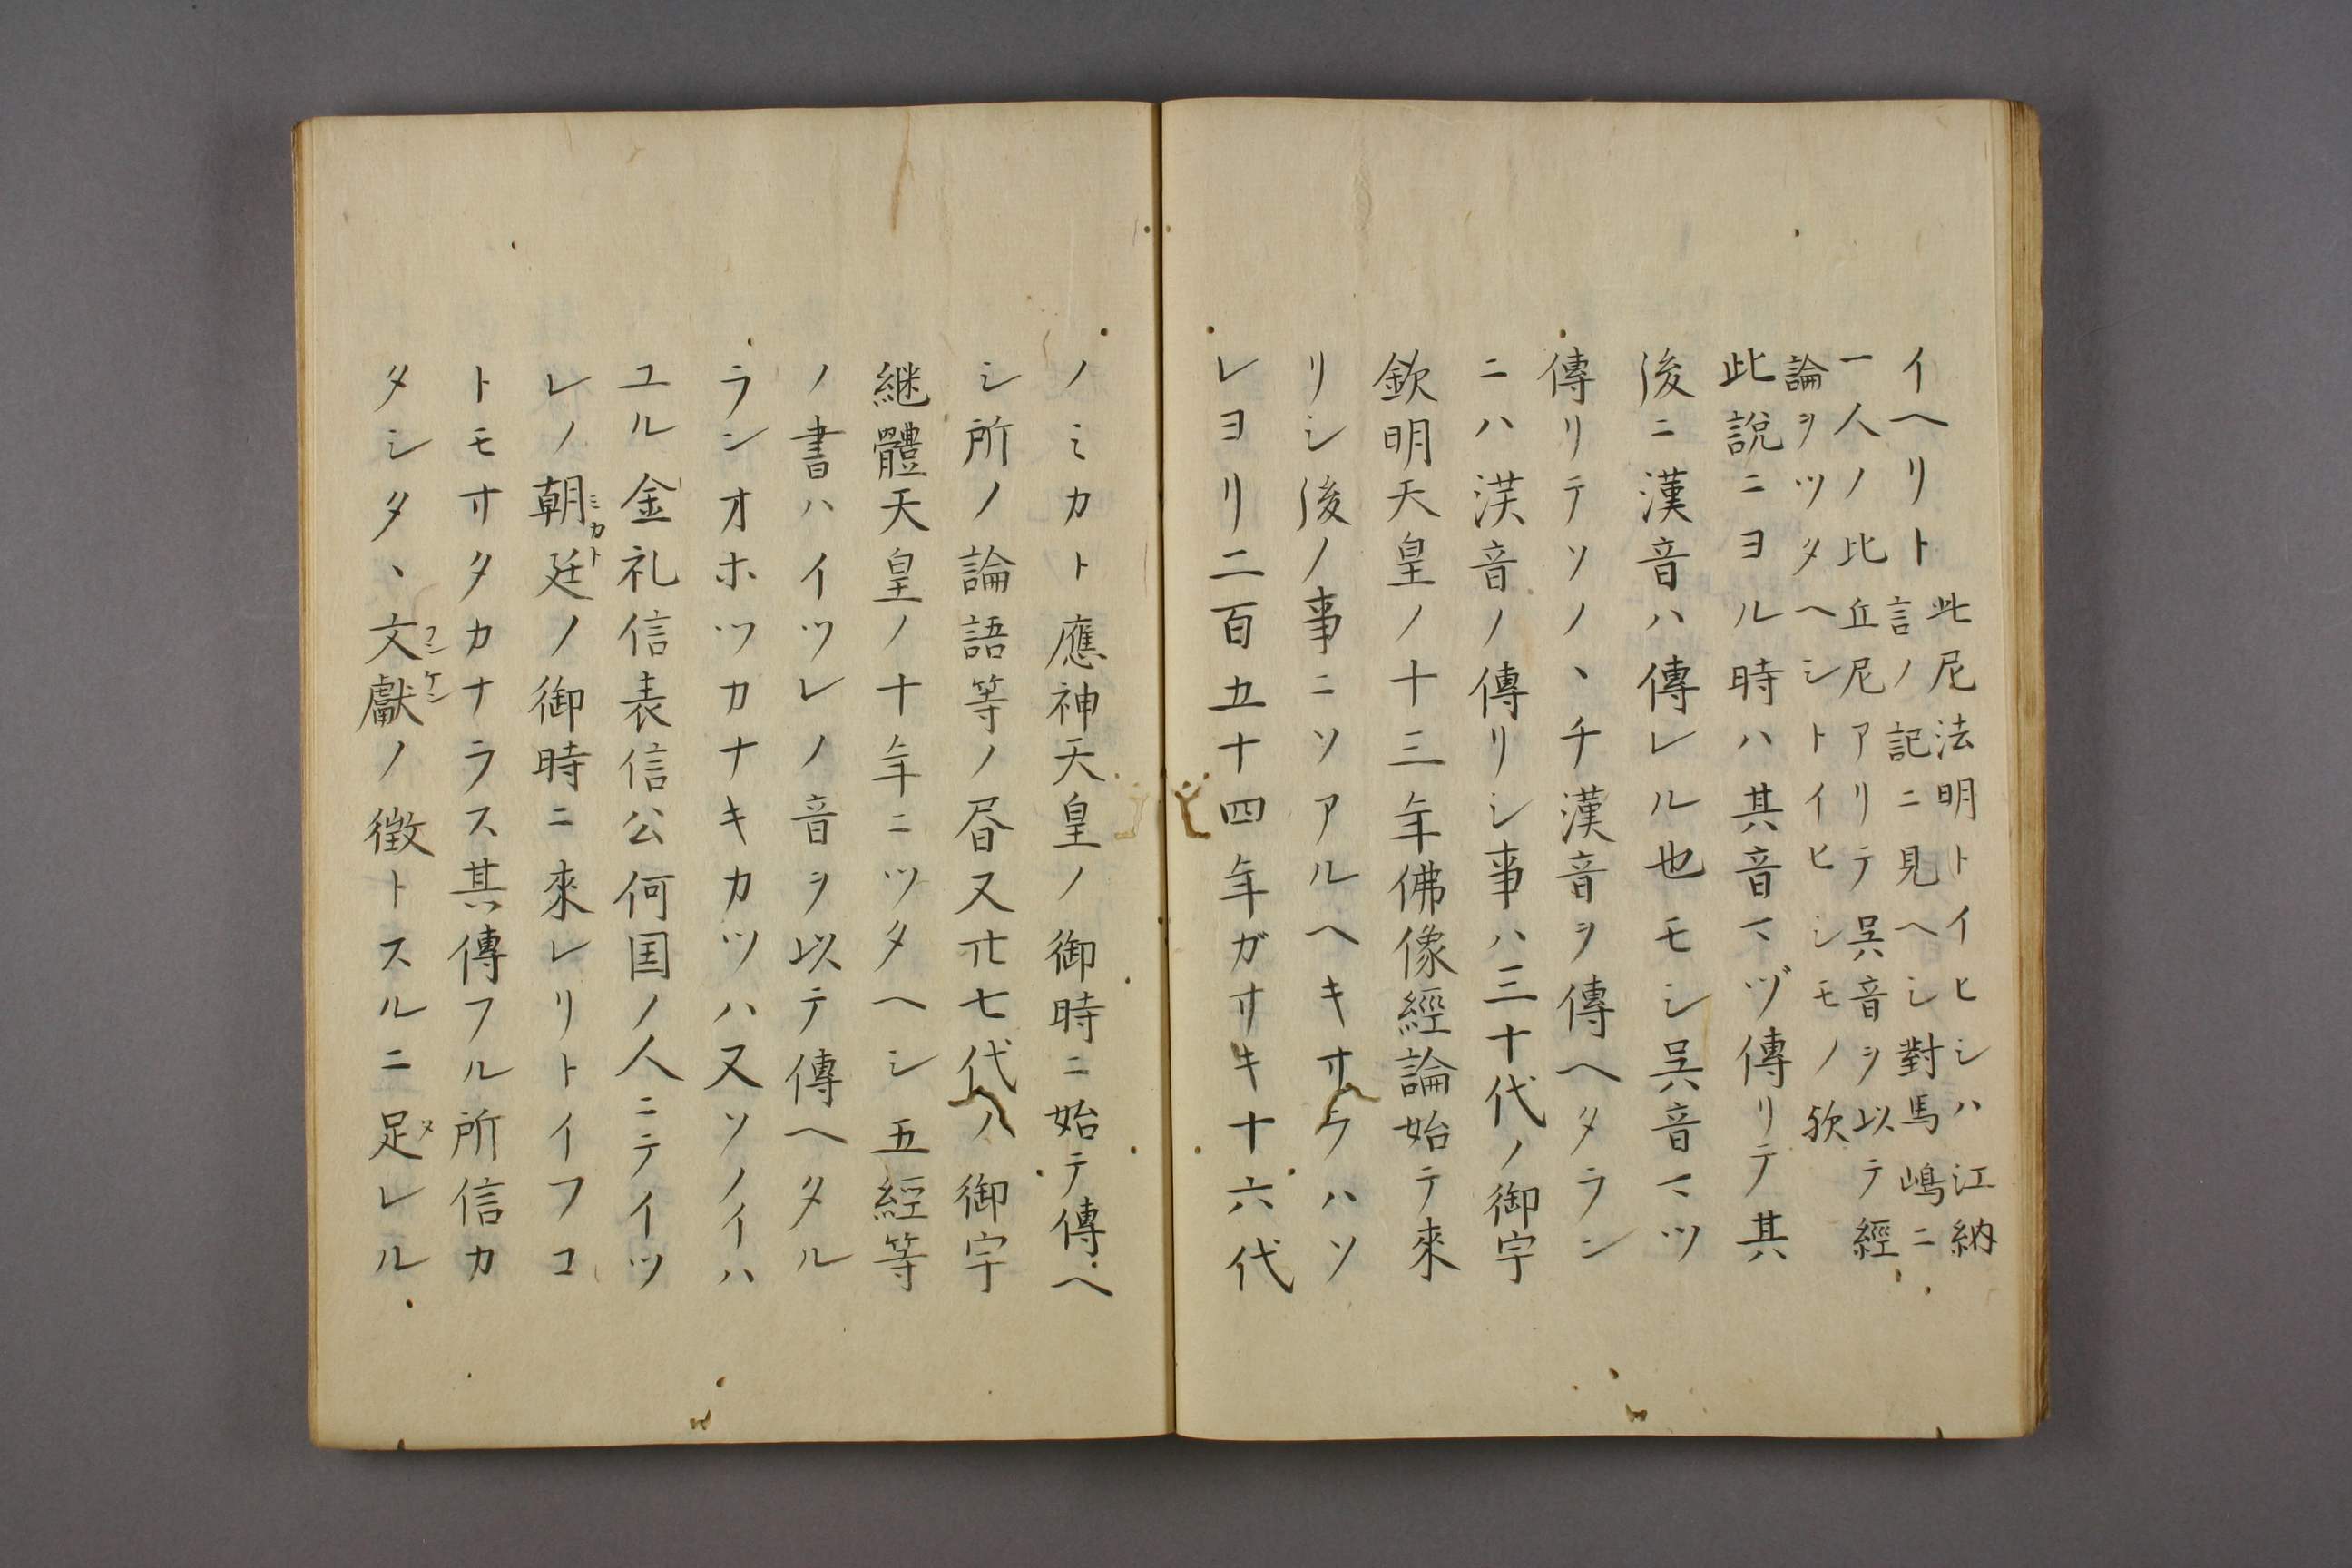 イヘリト此尼法明トイヒシハ江納
言ノ記ニ見ヘシ對馬嶋ニ
一人ノ比丘尼アリテ呉音ヲ以テ經
論ヲツタヘシトイヒシモノ欤
此說ニヨル時ハ其音マヅ傳リテ其
後ニ漢音ハ傳レル也モシ呉音マツ
傳リテソノヽチ漢音ヲ傳ヘタラン
ニハ漢音ノ傳リシ事ハ三十代ノ御宇
欽明天皇ノ十三年佛像經論始テ來
リシ後ノ事ニソアルヘキサラハソ
レヨリ二百五十四年ガサキ十六代
ノミカト應神天皇ノ御時ニ始テ傳ヘ
シ所ノ論語等ノ昏又廿七代ノ御宇
継體天皇ノ十年ニツタヘシ五經等
ノ書ハイツレノ音ヲ以テ傳ヘタル
ランオホツカナキカツハ又ソノイハ
ユル金礼信表信公何国ノ人ニテイツ
レノ朝廷ミカトノ御時ニ來レリトイフコ
トモサタカナラス其傳フル所信カ
タシタヽ文獻フンケンノ徴トスルニ足メレル